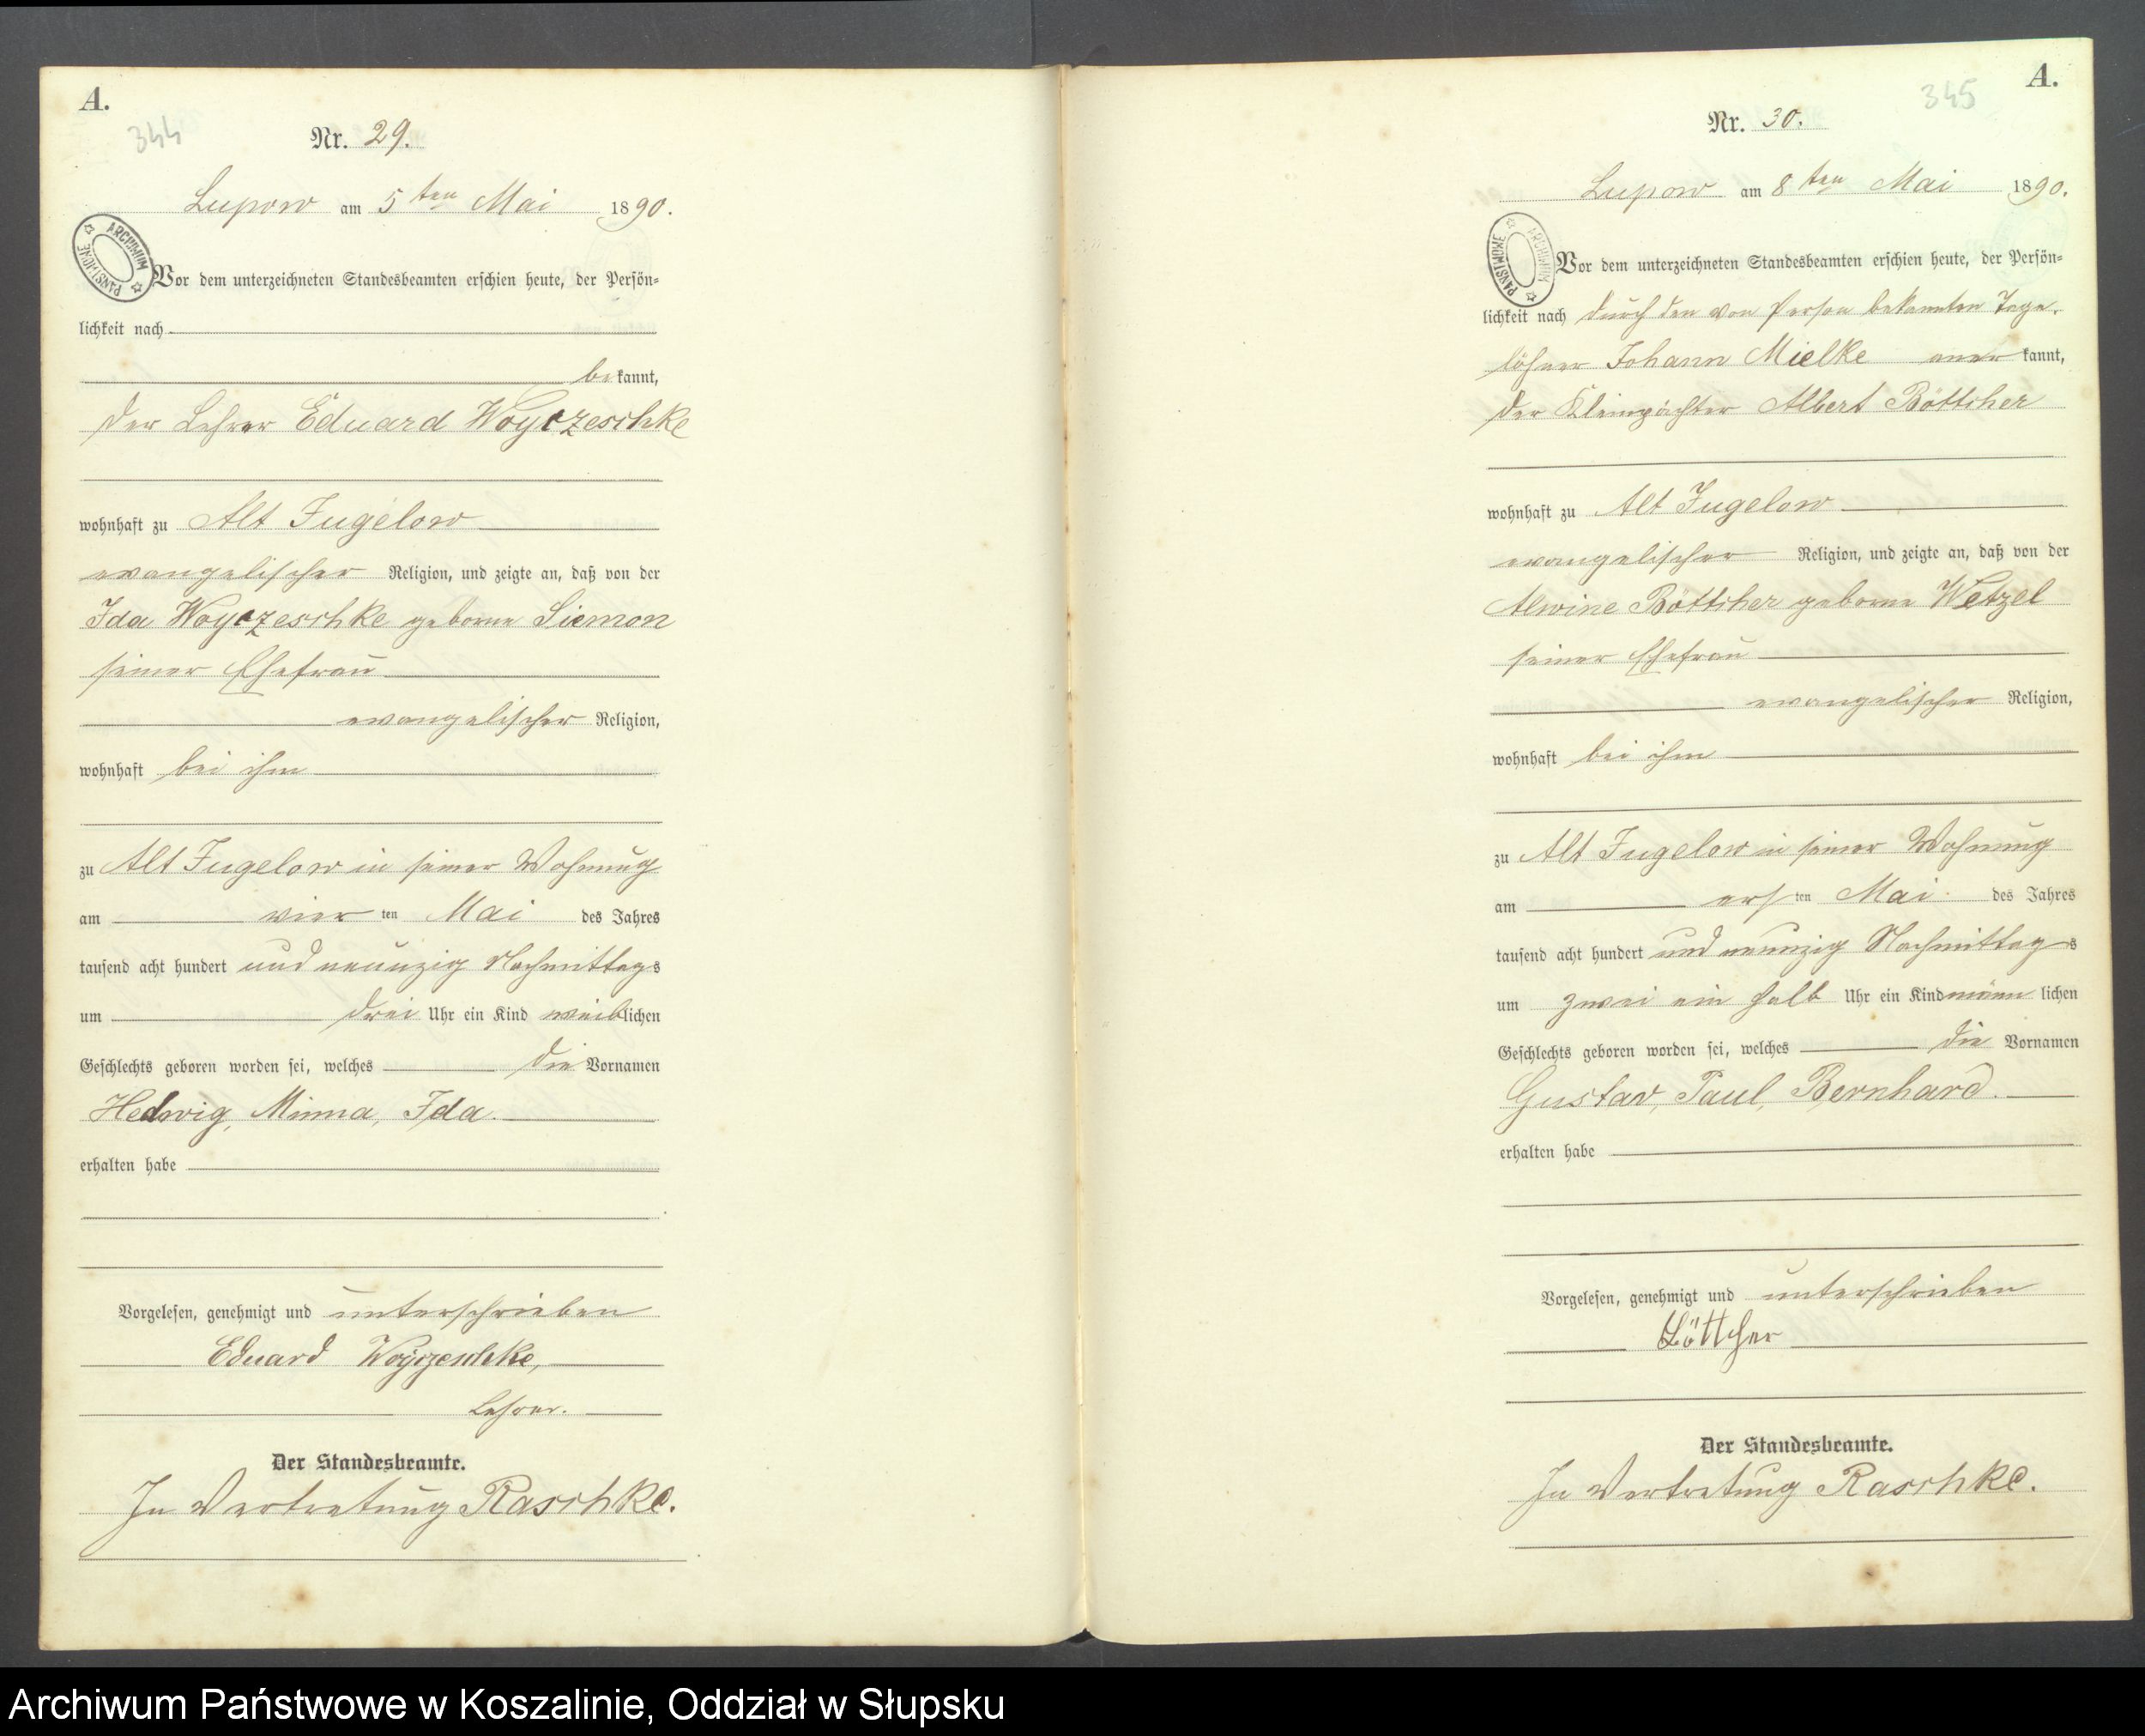 A.
344
Nr. 29.
Lupow am 5ten Mai 1890.
ARCHIWUM PAŃSTWOWE
Vor dem unterzeichneten Standesbeamten erschien heute, der Persön=
lichkeit nach
bekannt,
der Lehrer Eduard Woyczeschke
wohnhaft zu Alt Jugelow
evangelischer Religion, und zeigte an, daß von der
Ida Woyczeschke geborne Siemon
seiner Ehefrau
evangelischer Religion,
wohnhaft bei ihm
zu Alt Jugelow in seiner Wohnung
am vier ten Mai des Jahres
tausend acht hundert und neunzig Nachmittags
um drei Uhr ein Kind weiblichen
Geschlechts geboren worden sei, welches die Vornamen
Hedwig, Minna, Ida.
erhalten habe
Vorgelesen, genehmigt und unterschrieben
Eduard Woyczeschke,
Lehrer.
Der Standesbeamte.
In Vertretung Raschke.
A.
345
Nr. 30.
Lupow am 8ten Mai 1890.
ARCHIWUM PAŃSTWOWE
Vor dem unterzeichneten Standesbeamten erschien heute, der Persön=
lichkeit nach durch den von Person bekannten Tage-
löhner Johann Mielke anerkannt,
der Kleinpächter Albert Böttcher
wohnhaft zu Alt Jugelow
evangelischer Religion, und zeigte an, daß von der
Alwine Böttcher geborne Wetzel
seiner Ehefrau
evangelischer Religion,
wohnhaft bei ihm
zu Alt Jugelow in seiner Wohnung
am ers ten Mai des Jahres
tausend acht hundert und neunzig Nachmittags
um zwei ein halb Uhr ein Kind männlichen
Geschlechts geboren worden sei, welches die Vornamen
Gustav, Paul, Bernhard.
erhalten habe
Vorgelesen, genehmigt und unterschrieben
Böttcher
Der Standesbeamte.
In Vertretung Raschke.
Archiwum Państwowe w Koszalinie, Oddział w Słupsku